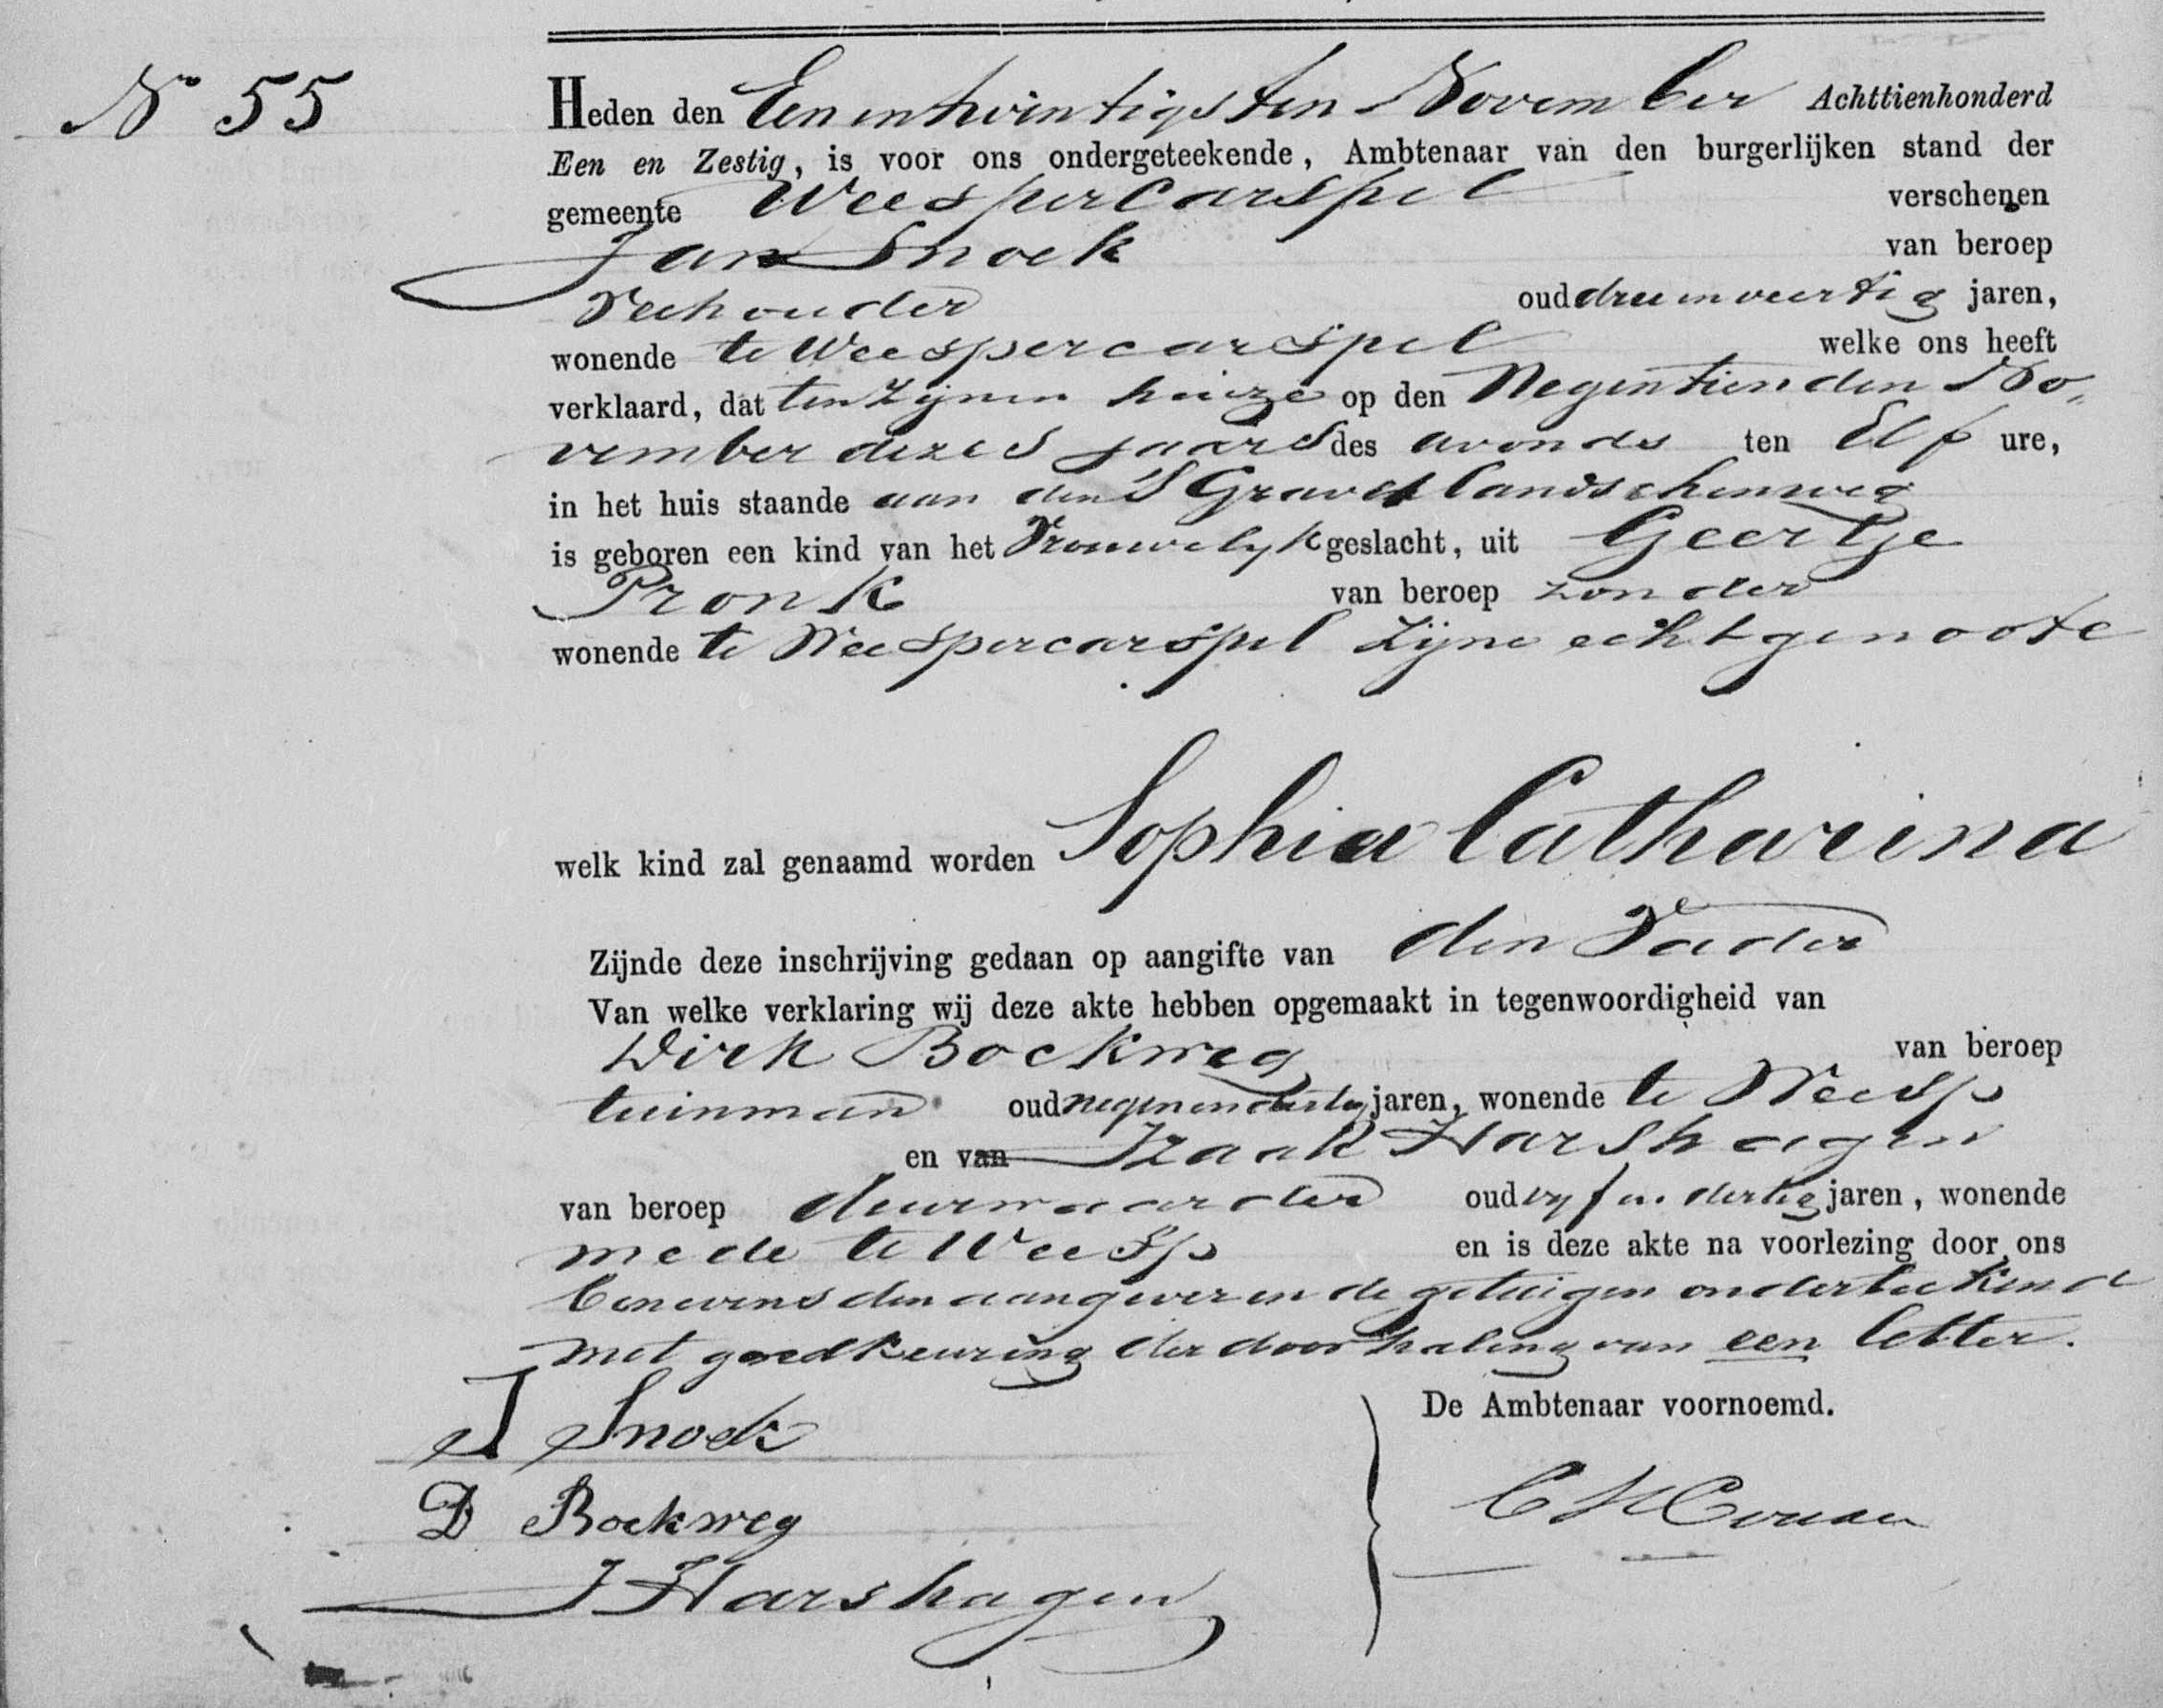 No 55
Heden den Eenentwintigsten November Achttienhonderd
Een en Zestig, is voor ons ondergeteekende, Ambtenaar van den burgerlijken stand der
gemeente Weespercarspel verschenen
Jan Snoek van beroep
Veehouder oud drieenveertig jaren,
wonende te Weespercarspel welke ons heeft
verklaard, dat ten zijnen huize op den Negentienden No„
vember dezes jaars des avonds ten Elf ure,
in het huis staande aan den S Gravelandschenweg
is geboren een kind van het Vrouwelijk geslacht, uit Geertje
Pronk van beroep zonder
wonende te Weespercarspel zijne echtgenoote
welk kind zal genaamd worden Sophia Catharina
Zijnde deze inschrijving gedaan op aangifte van den Vader
Van welke verklaring wij deze akte hebben opgemaakt in tegenwoordigheid van
Dirk Bockweg van beroep
tuinman oud negenendertig jaren, wonende te Weesp
en van Izaak Harshagen
van beroep deurwaarder oud vyf en dertig jaren, wonende
mede te Weesp en is deze akte na voorlezing door ons
benevens den aangever en de getuigen onderteekend
met goedkeuring der doorhaling van een letter.
De Ambtenaar voornoemd.
J Snoek
D Bockweg
J Harshagen